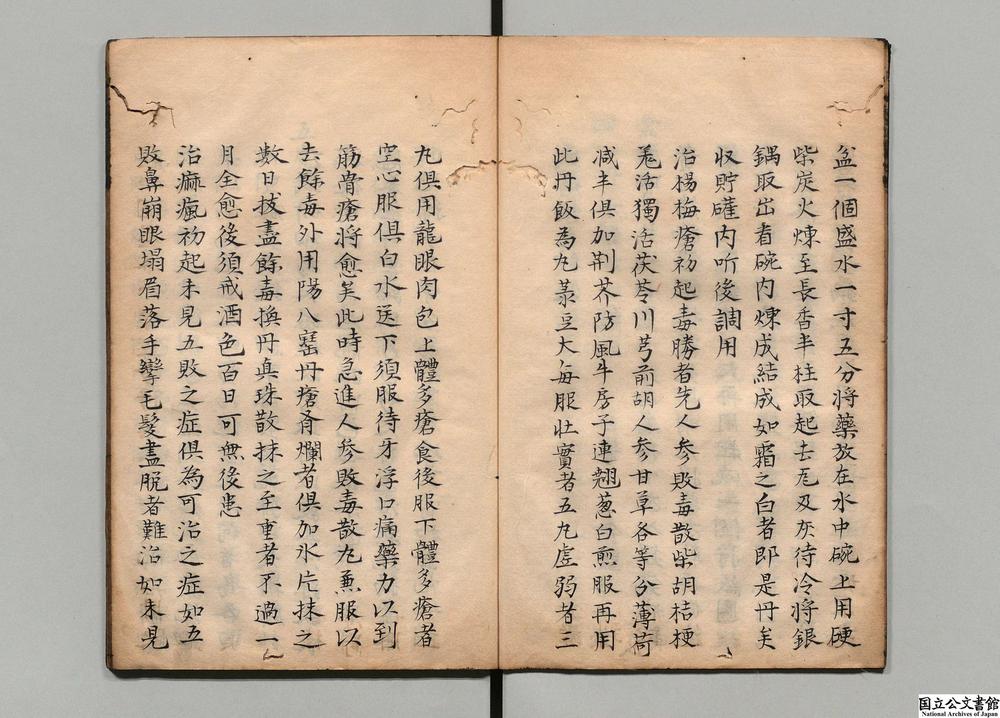 盆一個盛水一寸五分將藥放在水中碗上用硬
柴炭火煉至長香半柱取起去瓦及灰待冷將銀
鍋取出看碗内煉成結成如霜之白者即是丹矣
収貯礶内听後調用
治楊梅瘡初起毒勝者先人參敗毒散柴胡桔梗
羌活獨活茯苓川芎前胡人參甘草各等分薄荷
减半俱加荆芥防風牛房子連翹葱白煎服再用
此丹飯為丸菉豆大每服壮實者五丸虚弱者三
丸俱用龍眼肉包上體多瘡食後服下體多瘡者
空心服俱白水送下須服待牙浮口痛藥力以到
筋骨瘡將愈矣此時急進人參敗毒散丸兼服以
去餘毒外用陽八寶丹瘡有爛者俱加氷片抹之
数日拔盡餘毒換丹真珠散抹之至重者不過一
月全愈後須戒酒色百日可無後患
治痲瘋初起未見五敗之症俱為可治之症如五
敗鼻崩眼塌眉落手攣毛髮盡脱者難治如未見
国立公文書館
National Archives of Japan